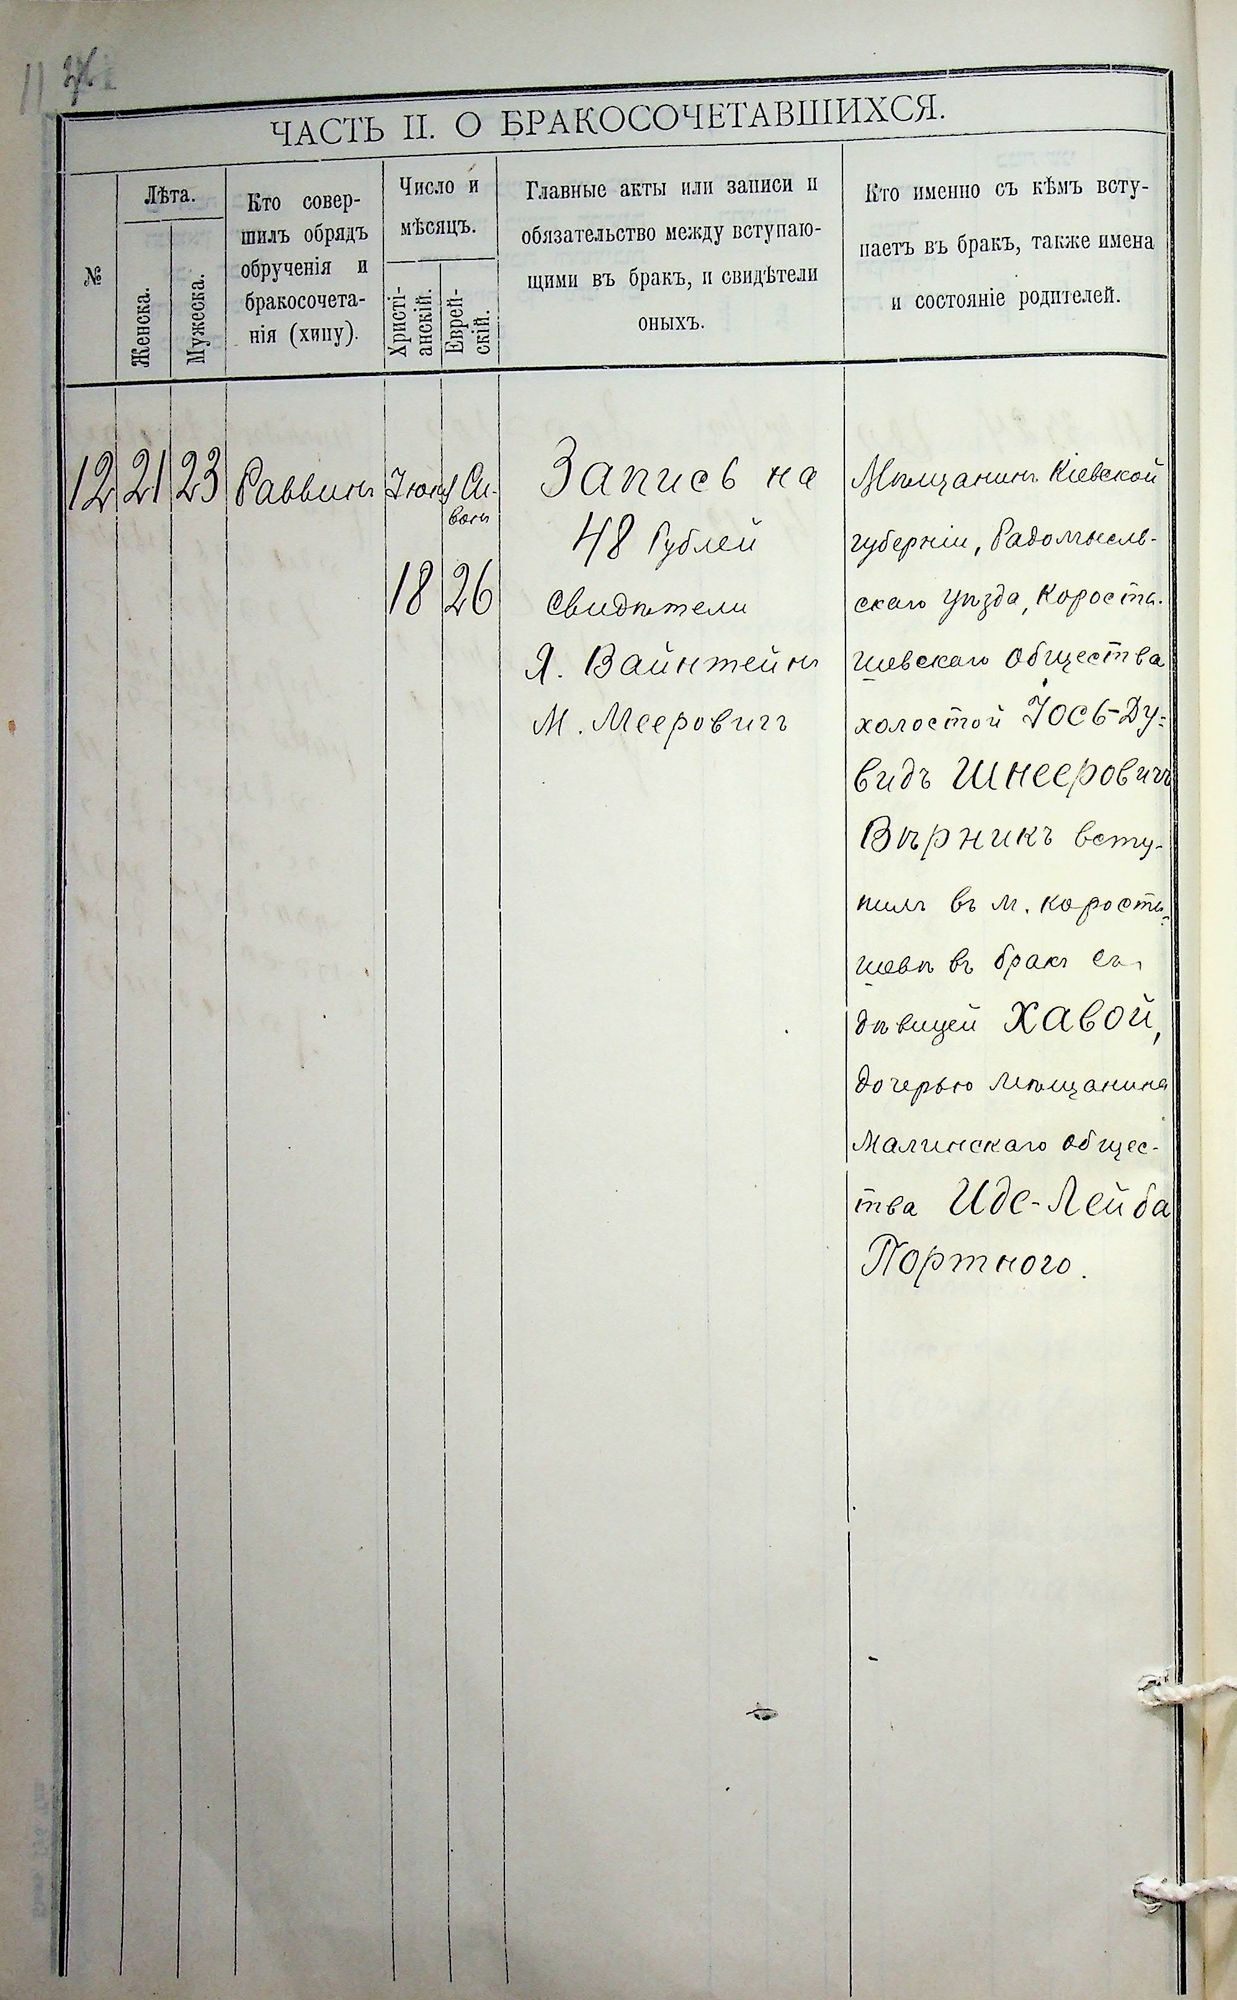 11
ЧАСТЬ II. О БРАКОСОЧЕТАВШИХСЯ.
№
Лѣта.
Женска.
Мужеска.
Кто совер-
шилъ обрядъ
обрученія и
бракосочета-
нія (хипу).
Число и
мѣсяцъ.
Христі-
анскій.
Еврей-
скій.
Главные акты или записи и
обязательство между вступаю-
щими въ бракъ, и свидѣтели
оныхъ.
Кто именно съ кѣмъ всту-
паетъ въ бракъ, также имена
и состояніе родителей.
12
21
23
Раввинъ
Іюня
18
Си-
ванъ
26
Запись на
48 Рублей
свидѣтели
Я. Вайнтейнъ
М. Мееровичъ
Мѣщанинъ Кіевской
губерніи, Радомысль-
скаго уѣзда, Корости-
шевскаго общества
холостой Іось-Ду-
видъ Шнееровичъ
Вѣрникъ всту-
пилъ въ м. Корости-
шевѣ въ бракъ съ
дѣвицей Хавой,
дочерью мѣщанина
Малинскаго общес-
тва Иде-Лейба
Портного.